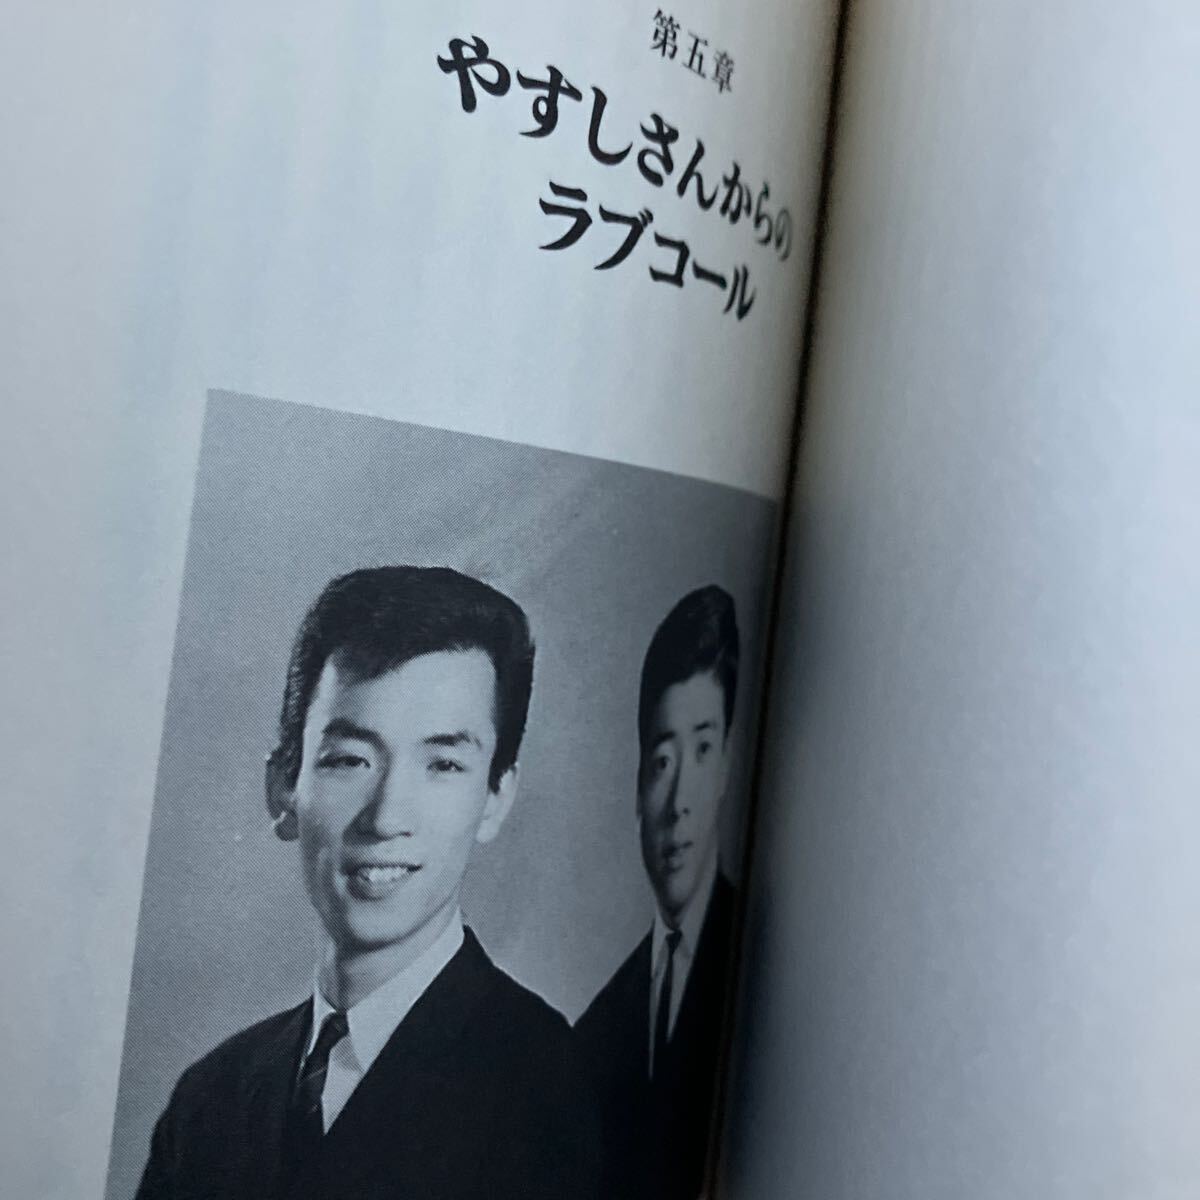 第五章
やすしさんからの
ラブコール